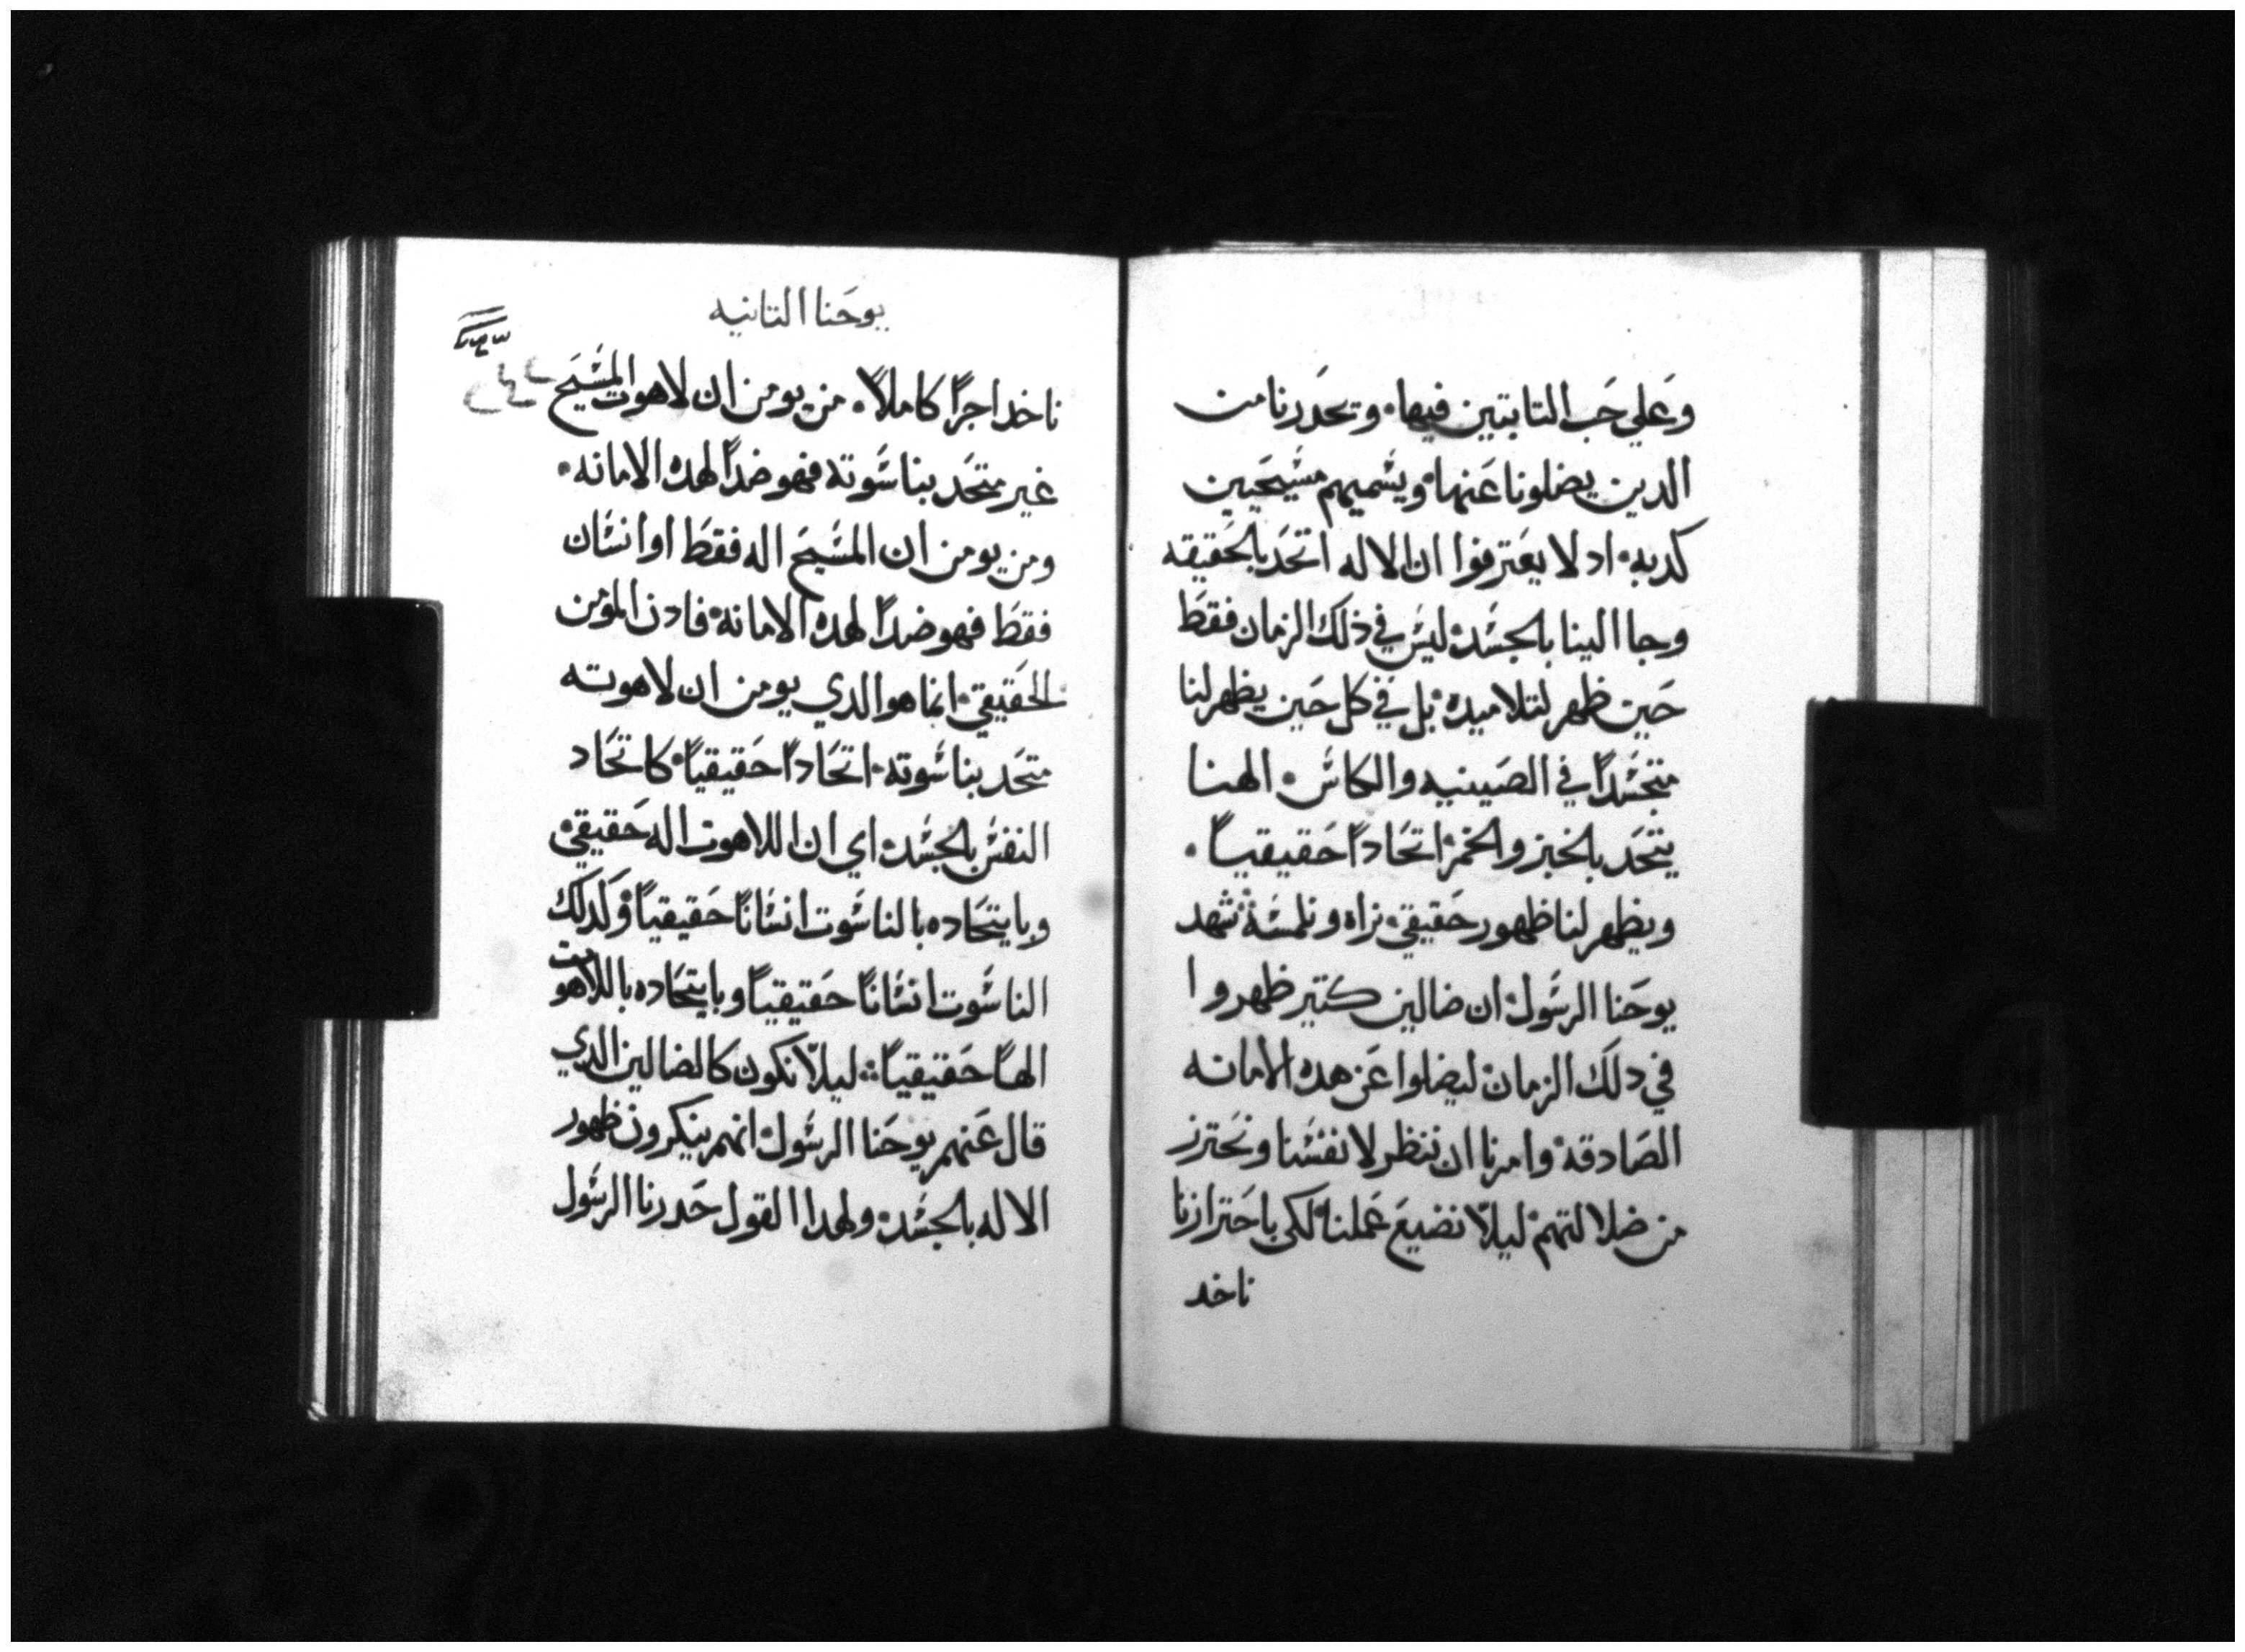 وعلي حب التابتين فيها٠ وتحدرنا من
الدين يضلونا عنها٠ ويسميهم مسيحيين
كدبه٠ اد لا يعترفوا ان الاله اتحد بالحقيقه
وجا الينا بالجسد٠ ليس في ذلك الزمان فقط
حين ظهر لتلاميده٠ بل في كل حين يظهر لنا
متجسداً في الصينيه والكاس٠ الهنا
يتحد بالخبز والخمر٠ اتحاداً حقيقياً٠
ويظهر لنا ظهور حقيقي٠ نراه ونلمسه٠ شهد
يوحنا الرسول٠ ان ضالين كتير ظهروا
في دلك الزمان٠ ليضلوا عن هده الامانه
الصادقه٠ وامرنا ان ننظر لانفسنا ونحترز
من ضلالتهم٠ ليلا نضيع عملنا٠ لكي باحترازنا
ناخد
يوحنا التانيه
ناخد اجراً كاملاً٠ من يومن ان لاهوت المسيح
غير متحد بناسوته فهو ضداً لهده الامانه٠
ومن يومن ان المسيح اله فقط او انسان
فقط فهو ضداً لهده الامانه٠ فادن المومن
الحقيقي٠ انما هو الدي يومن ان لاهوته
متحد بناسوته٠ اتحاداً حقيقياً٠ كاتحاد
النفس بالجسد٠ اي ان اللاهوت اله حقيقي٠
وبايتحاده بالناسوت انساناً حقيقياً٠ وكدلك
الناسوت انساناً حقيقياً وبايتحاده باللاهوت
الهاً حقيقياً٠ ليلا نكون كالضالين الدي
قال عنهم يوحنا الرسول٠ انهم ينكرون ظهور
الاله بالجسد٠ ولهدا القول حدرنا الرسول